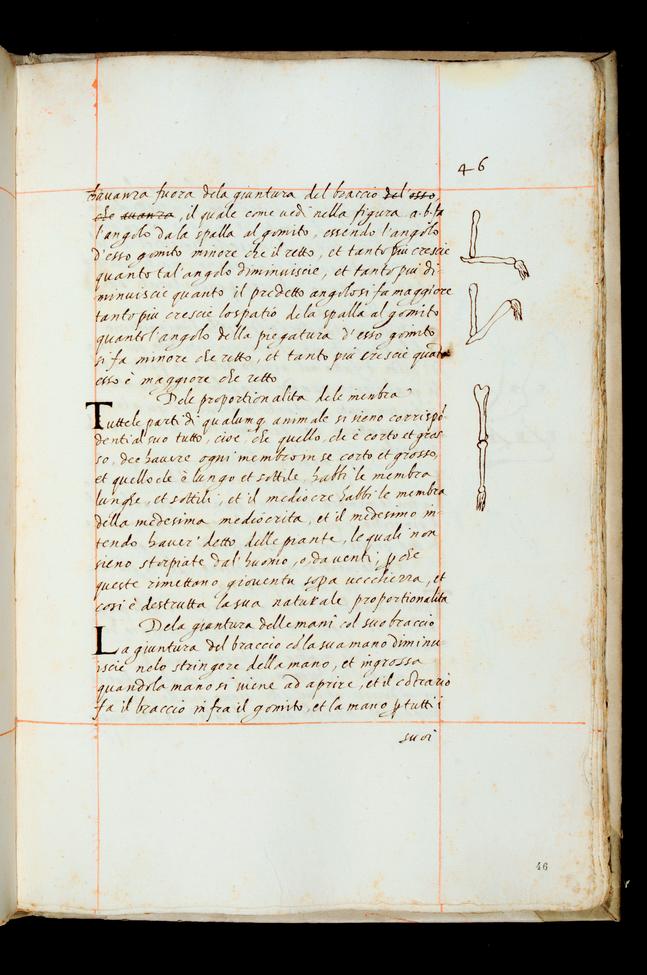 46
havanza fuora dela giuntura del braccio del'osso
che avanza, il quale come vedi nella figura a·b· fa
l'angolo dala spalla al gomito, essendo l'angolo
d'esso gomito minore che il retto, et tanto più crescie
quanto tal'angolo diminuiscie, et tanto più di-
minuiscie quanto il predetto angolo si fa maggiore
tanto più crescie lo spatio dela spalla al gomito
quanto l'angolo della piegatura d'esso gomito
si fa minore che retto, et tanto più crescie quāto
esso è maggiore che retto
Dele proportionalita dele menbra
Tutte le parti di qualunq animale si sieno corrispō-
denti al suo tutto, cioe, che quello, che è corto et gros-
so, dee havere ogni membro in se corto et grosso,
et quello che è lungo et sottile, habbi le membra
lunghe, et sottili, et il mediocre habbi le membra
della medesima mediocrita, et il medesimo in-
tendo haver' detto delle piante, le quali non
sieno storpiate dal'huomo, o, da venti, ꝑche
queste rimettano gioventu sopa vecchiezza, et
cosi è destrutta la sua naturale proportionalita
Dela giuntura delle mani col suo braccio
La giuntura del braccio cō la sua mano diminu-
iscie nelo stringere della mano, et ingrossa
quando la mano si viene ad aprire, et il cōtrario
fa il braccio infra il gomito, et la mano ꝑ tutti i
suoi
46